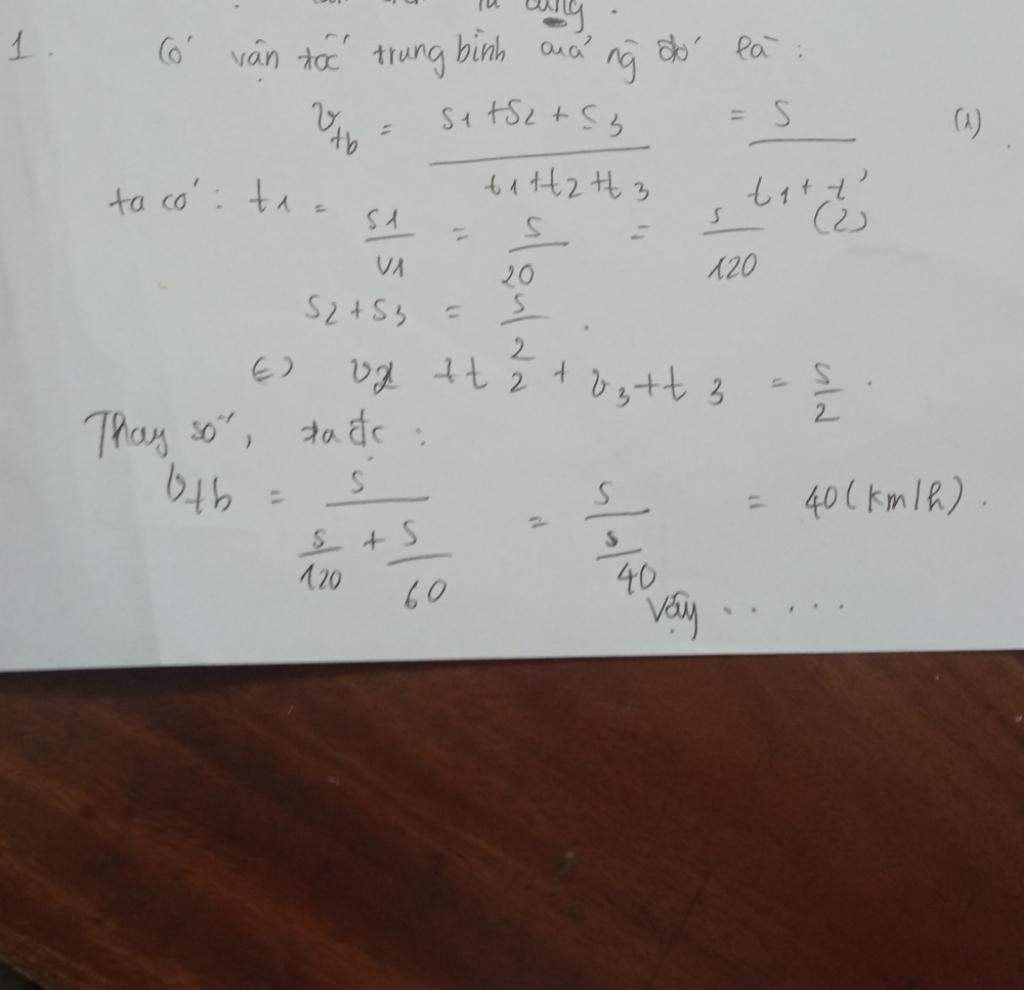 cùng.
1. Có vận tốc trung bình của ng đó là:
v_tb = (s1 + s2 + s3)/(t1 + t2 + t3) = s/(t1 + t') (1)
ta có: t1 = s1/v1 = s/20 = s/120 (2)
s2 + s3 = s/2.
(=) v2 + t2 + v3 + t3 = s/2.
Thay số, ta đc:
v_tb = s/(s/120 + s/60) = s/(s/40) = 40 (km/h).
Vậy .....